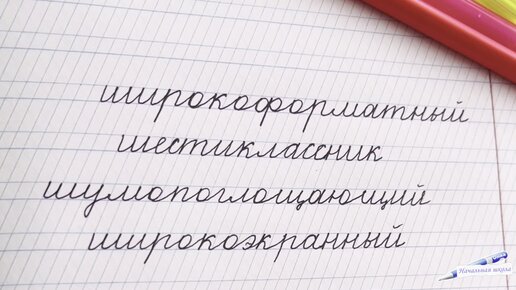 широкоформатный
шестиклассник
шумопоглощающий
широкоэкранный
Начальная школа